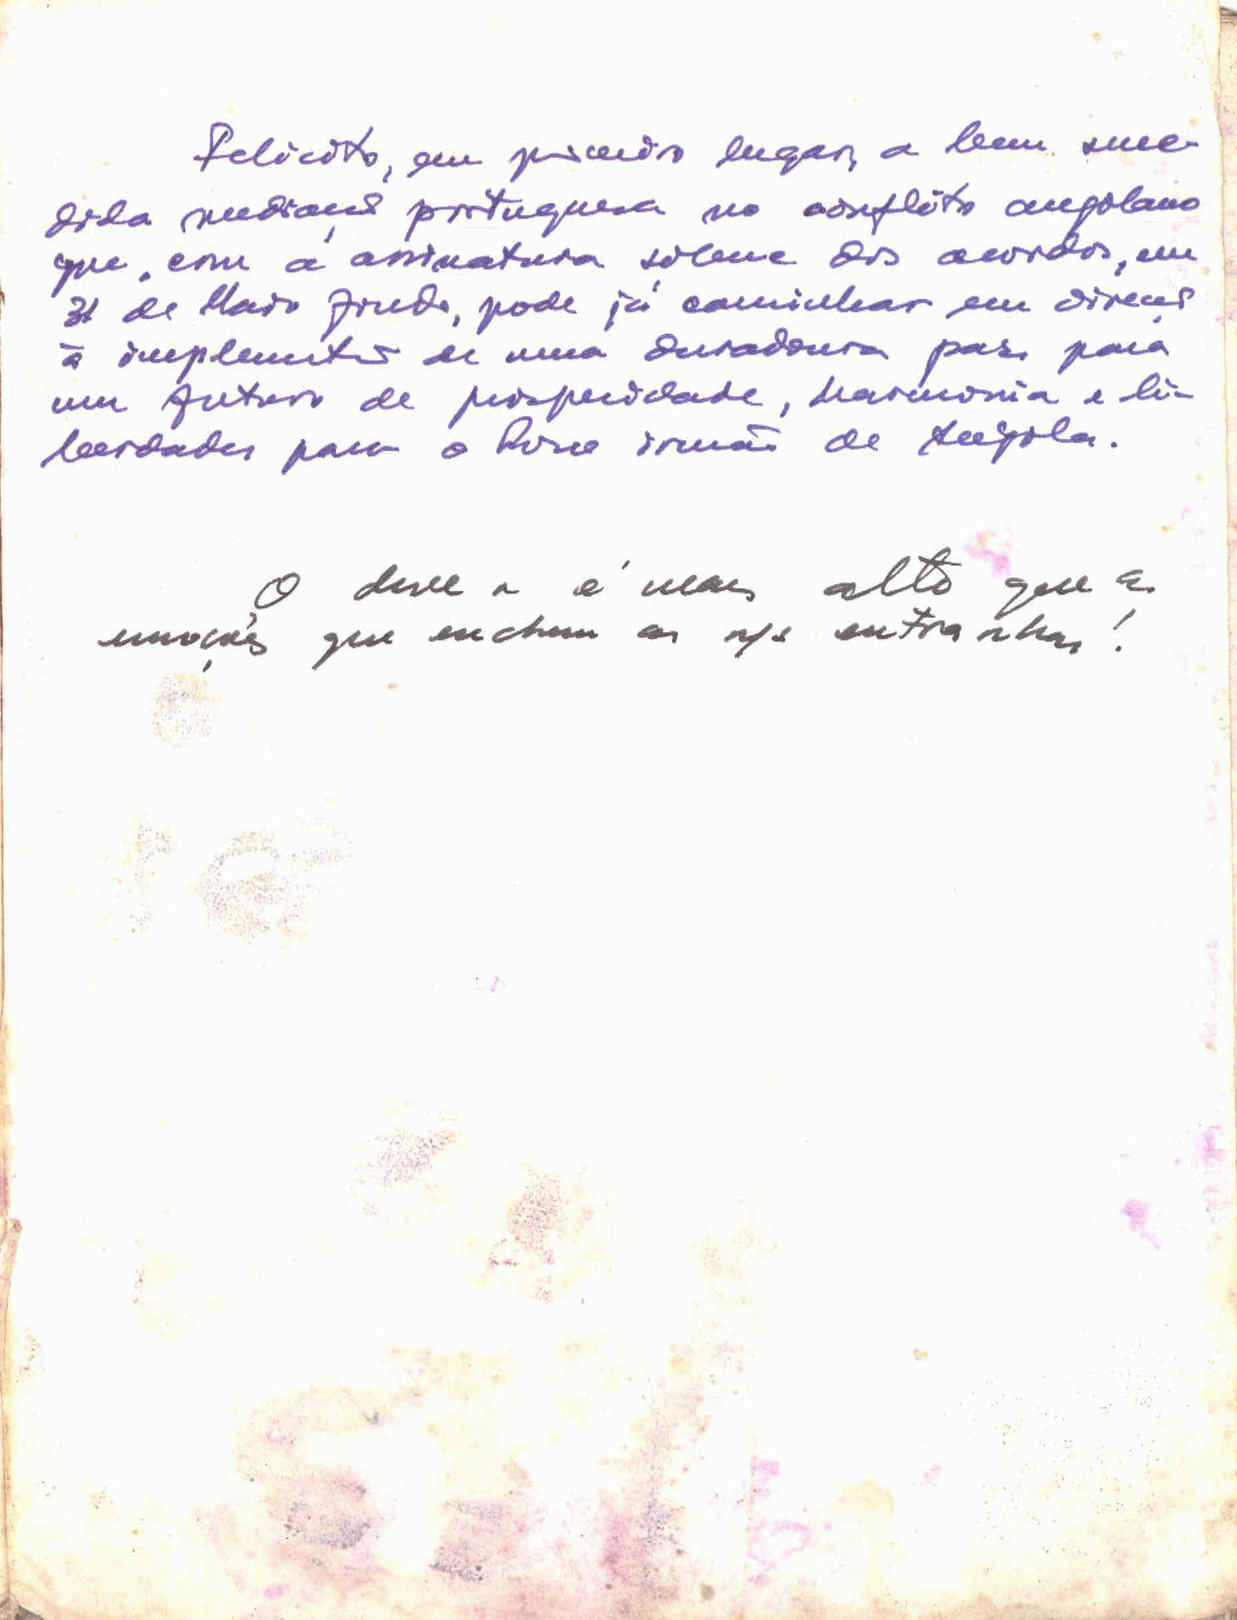 Felicito, em primeiro lugar, a bem suce-
dida mediação portuguesa no conflito angolano
que, com a assinatura solene dos acordos, em
31 de Maio findo, pode já caminhar em direcção
à implementação de uma duradoura paz, para
um futuro de prosperidade, harmonia e li-
berdades para o Povo irmão de Angola.
O dever é mais alto que as
emoções que enchem as n/s entranhas!